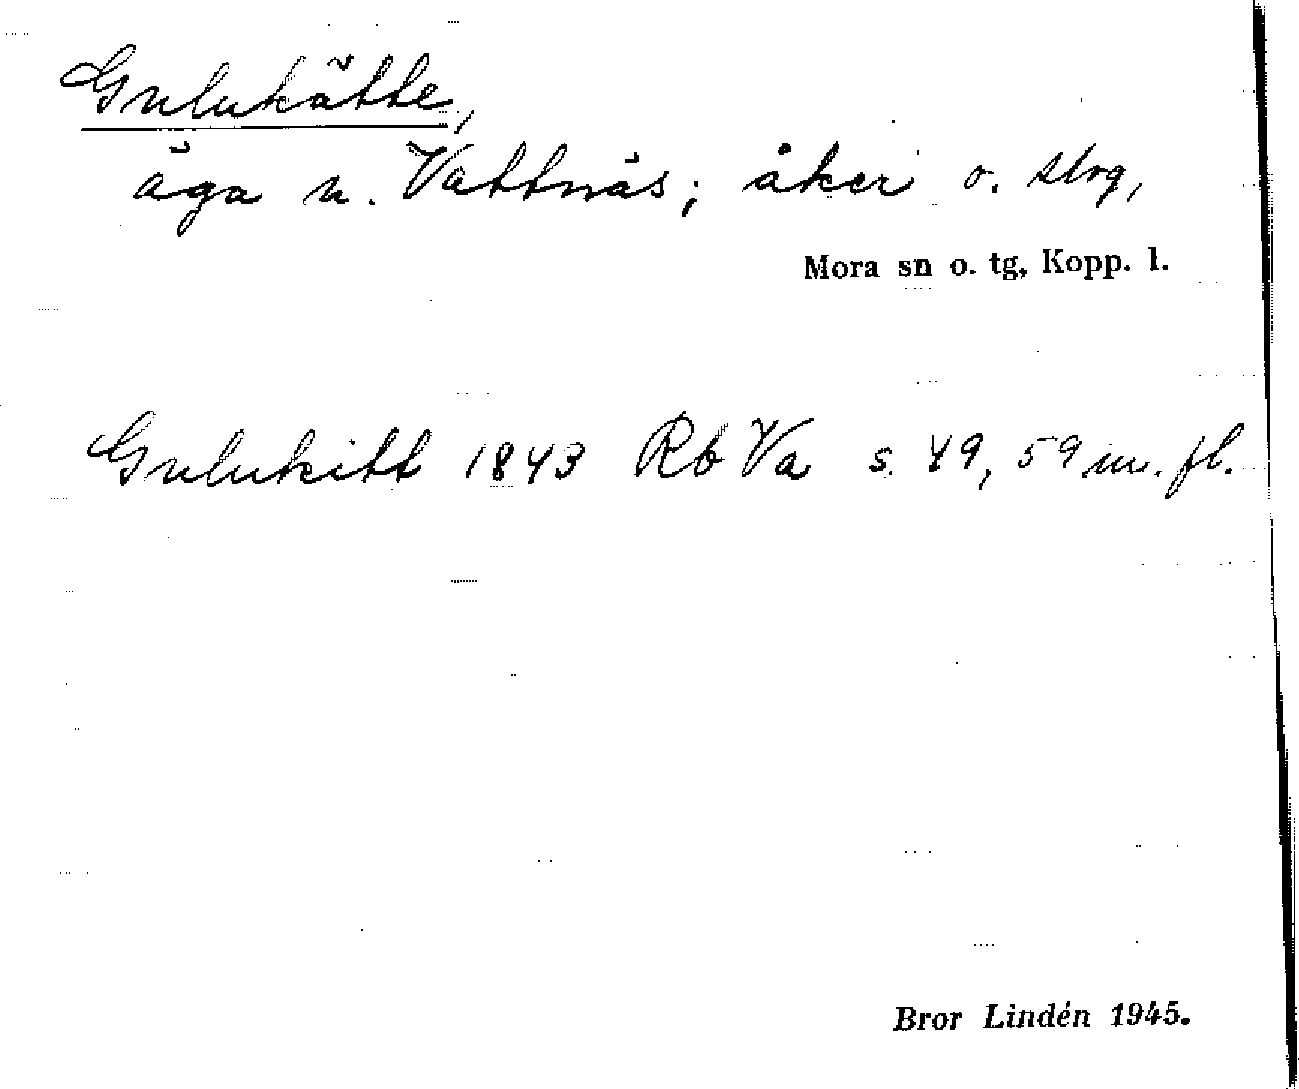 Gulukätte,
äga n. Vattnäs; åker o. slog,
Mora sn o. tg, Kopp. l.
Gulukitt 1843 Rb Va s. 49, 59 m. fl.
Bror Lindén 1945.